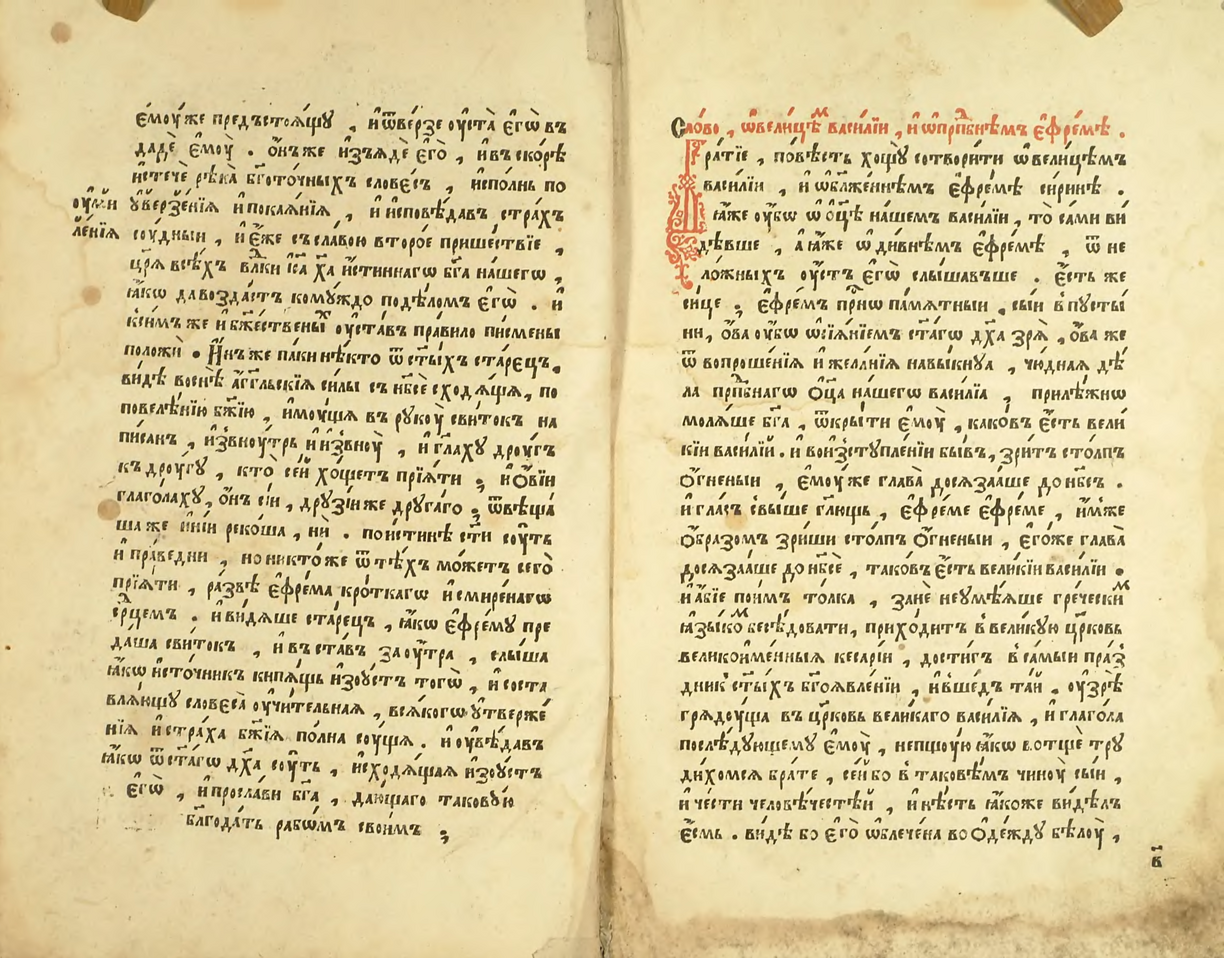 є҆моу́же предъстоѧ́щꙋ , и҆ѿве́рзе оу҆ста̀ є҆гѡ̀ въ
дадѐ є҆моу̀ . о҆нъ́же и҆зъѧдѐ є҆го̀ , и҆въско́рѣ
и҆стечѐ рѣка̀ бг҃ото́чныхъ слове́съ , и҆спо́лнь по
оу҆ми ᲂу҆верзе́нїѧ и҆покаѧ́нїѧ , и҆и҆сповѣ́давъ стра́хъ
ле́нїѧ соу́дныи , и҆є҆́же съсла́вою второ́е прише́ствїе ,
цр҃ѧ̀ всѣ́хъ влⷣки і҆с҃а хр҃а и҆́стиннагѡ бг҃а на́шегѡ ,
ꙗ҆́кѡ давозда́стъ комꙋ́ждо подѣ́ломъ є҆гѡ̀ . и҆
ксимъ́же и҆бж҃е́ственыⷯ оу҆ста́въ пра́вило пи́смены
положѝ . И҆́нъже па́ки нѣ́кто ѿст҃ы́хъ ста́рецъ ,
ви́дѣ восн҃ѣ а҆́гг҃льскїѧ си́лы съ нб҃сѐ сходѧ́щѧ , по
повелѣ́нїю бж҃їю , и҆моу́щѧ въ рꙋкоу̀ сви́токъ на
пи́санъ , и҆звноу́трь и҆и҆звноу̀ , и҆ гл҃ахꙋ дроу́гъ
къ дроу́гꙋ , кто̀ се́й хо́щетъ прїѧ́ти ; и҆ѻ҆ві́и
глаго́лахꙋ , о҆́нъ сі́и , дрꙋзі́иже дрꙋга́го . ѿвѣща́
ша же и҆ні́и реко́ша , нѝ . пои́стинѣ ст҃и соу́ть
и҆ пра́ведни , но никто́же ѿтѣ́хъ мо́жетъ сего̀
прїѧ́ти , ра́звѣ є҆фре́ма кро́ткагѡ и҆смире́нагѡ
срⷣцемъ . и҆ви́дѧше ста́рецъ , ꙗ҆́кѡ є҆фре́мꙋ пре
да́ша сви́токъ , и҆ въста́въ заоу́тра , слы́ша
ꙗ҆́кѡ и҆сто́чникъ кипѧ́щь и҆зоу́стъ тогѡ̀ , и҆соста
влѧ́ющꙋ словеса̀ оу҆чи́тельнаѧ , всѧ́когѡ ᲂу҆тверже́
нїѧ и҆стра́ха бж҃їѧ по́лна соу́щѧ . и҆оу҆вѣ́давъ
ꙗ҆́кѡ ѿст҃а́гѡ дх҃а соу́ть , и҆сходѧ́щаѧ и҆зоу́стъ
є҆гѡ̀ , и҆просла́ви бг҃а , даю́щаго такову́ю
благода́ть рабѡ́мъ свои́мъ ;
Сло́во , ѡ҆вели́цѣⷨ васи́лїи , и҆ ѡ҆прпⷣбнѣмъ є҆фре́мѣ .
Бра́тїе , по́вѣсть хощꙋ̀ сотвори́ти ѡ҆ вели́цѣмъ
васи́лїи , и҆ ѡ҆бл҃же́ннѣмъ є҆фре́мѣ си́ринѣ .
ꙗ҆́же оу҆́бѡ ѡ҆ ѻ҆ц҃ѣ на́шемъ васи́лїи , то̀ са́ми ви́
дѣвше , а҆ ꙗ҆́же ѡ҆ ди́внѣмъ є҆фре́мѣ , ѿ не
ло́жныхъ оу҆́стъ є҆гѡ̀ слы́шавъше . є҆́сть же
си́це ; є҆фре́мъ при́сѡ па́мѧтныи , сы́и в҆пꙋсты́
ни , ѻ҆́ва оу҆́бѡ ѡ҆сїѧ́нїемъ ст҃а́гѡ дх҃а зрѧ̀ , ѻ҆́ва же
ѿ вопроше́нїѧ и҆ жела́нїѧ навы́кнꙋѧ , чю́днаѧ дѣ
ла прпⷣбнагѡ ѻ҆ц҃а на́шегѡ васи́лїа , прилѣ́жнѡ
молѧ́ше бг҃а , ѿкры́ти є҆моу̀ , како́въ є҆́сть вели́
кїи васи́лїй . и҆ вои҆зстꙋпле́нїи бы́въ , зри́тъ сто́лпъ
ѻ҆́гненыи , є҆моу́же глава̀ досѧза́аше до нб҃съ .
и҆ гла́съ свы́ше гл҃ющь , є҆фре́ме є҆фре́ме , и҆́мже
ѻ҆́бразомъ зри́ши сто́лпъ ѻ҆́гненыи , є҆го́же глава̀
досѧза́аше до нб҃сѐ , тако́въ є҆́сть вели́кїи васи́лїи .
и҆ а҆́бїе пои́мъ то́лка , занѐ неумѣ́ѧше гре́ческиⷨ
ꙗ҆зы́коⷨ бесѣ́довати , прихо́дитъ в҆вели́кꙋю цр҃ковь
великои҆мени́ныѧ кесарі́и , дости́гъ в҆са́мыи пра́з
дник ст҃ы́хъ бг҃оѧвле́нїи , и҆вше́дъ та́й . оу҆зрѣ̀
грѧдоу́ща въ цр҃ковь вели́каго васи́лїѧ , и҆ глаго́ла
послѣ́дꙋющемꙋ є҆моу̀ , непщоу́ю ꙗ҆́кѡ вотщѐ трꙋ
ди́хомсѧ бра́те , се́й бо в҆тако́вѣмъ чиноу̀ сы́и ,
и҆ че́сти человѣ́честѣй , и҆ нѣ́сть ꙗ҆́коже ви́дѣлъ
є҆́смь . ви́дѣ бо є҆го̀ ѡ҆блече́на во ѻ҆де́ждꙋ бѣ́лоу ,
в҃